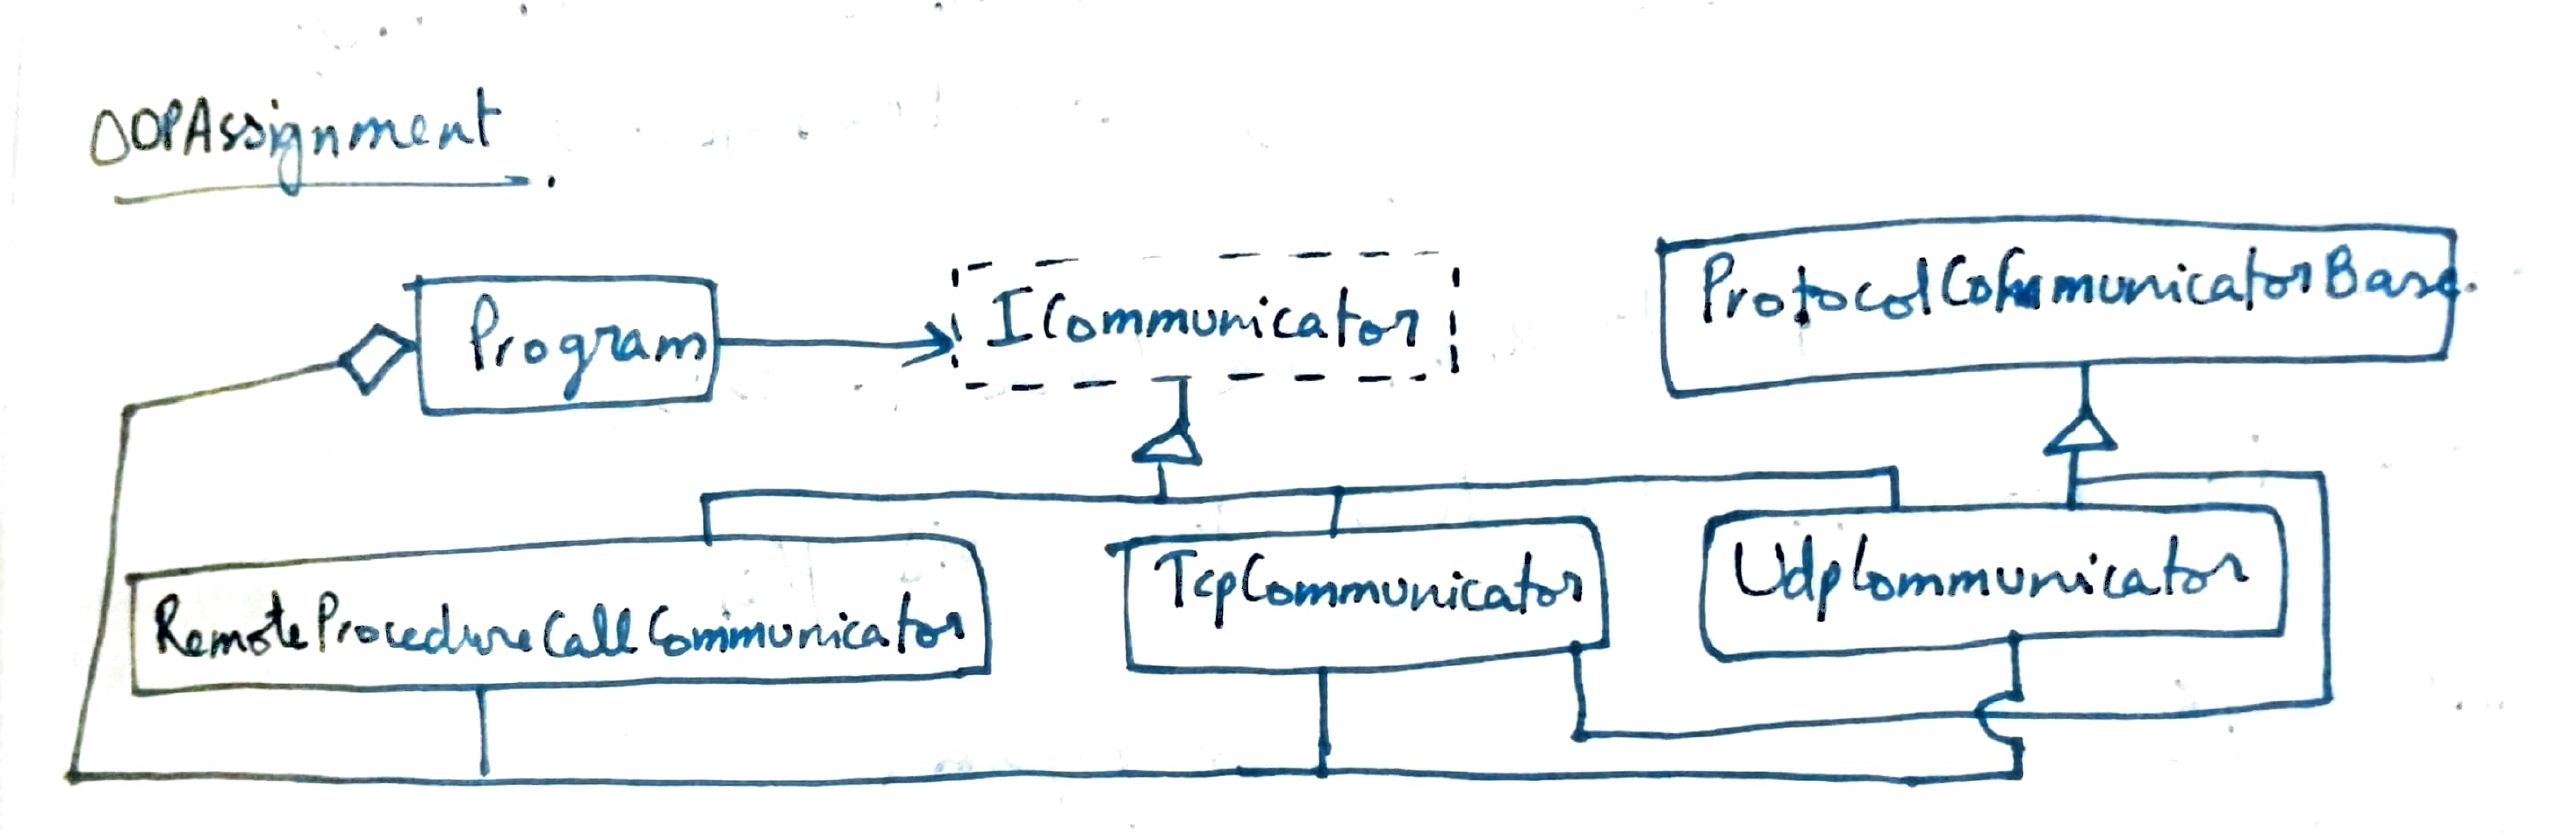 OOPAssignment
Program
ICommunicator
ProtocolCommunicatorBase
RemoteProcedureCallCommunicator
TcpCommunicator
UdpCommunicator